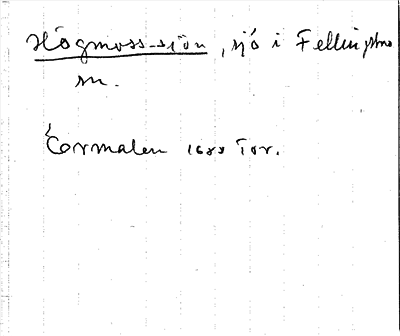 Högmoss-sjön, sjö i Fellingsbro
sn.
Tormalen 1688 Tor.